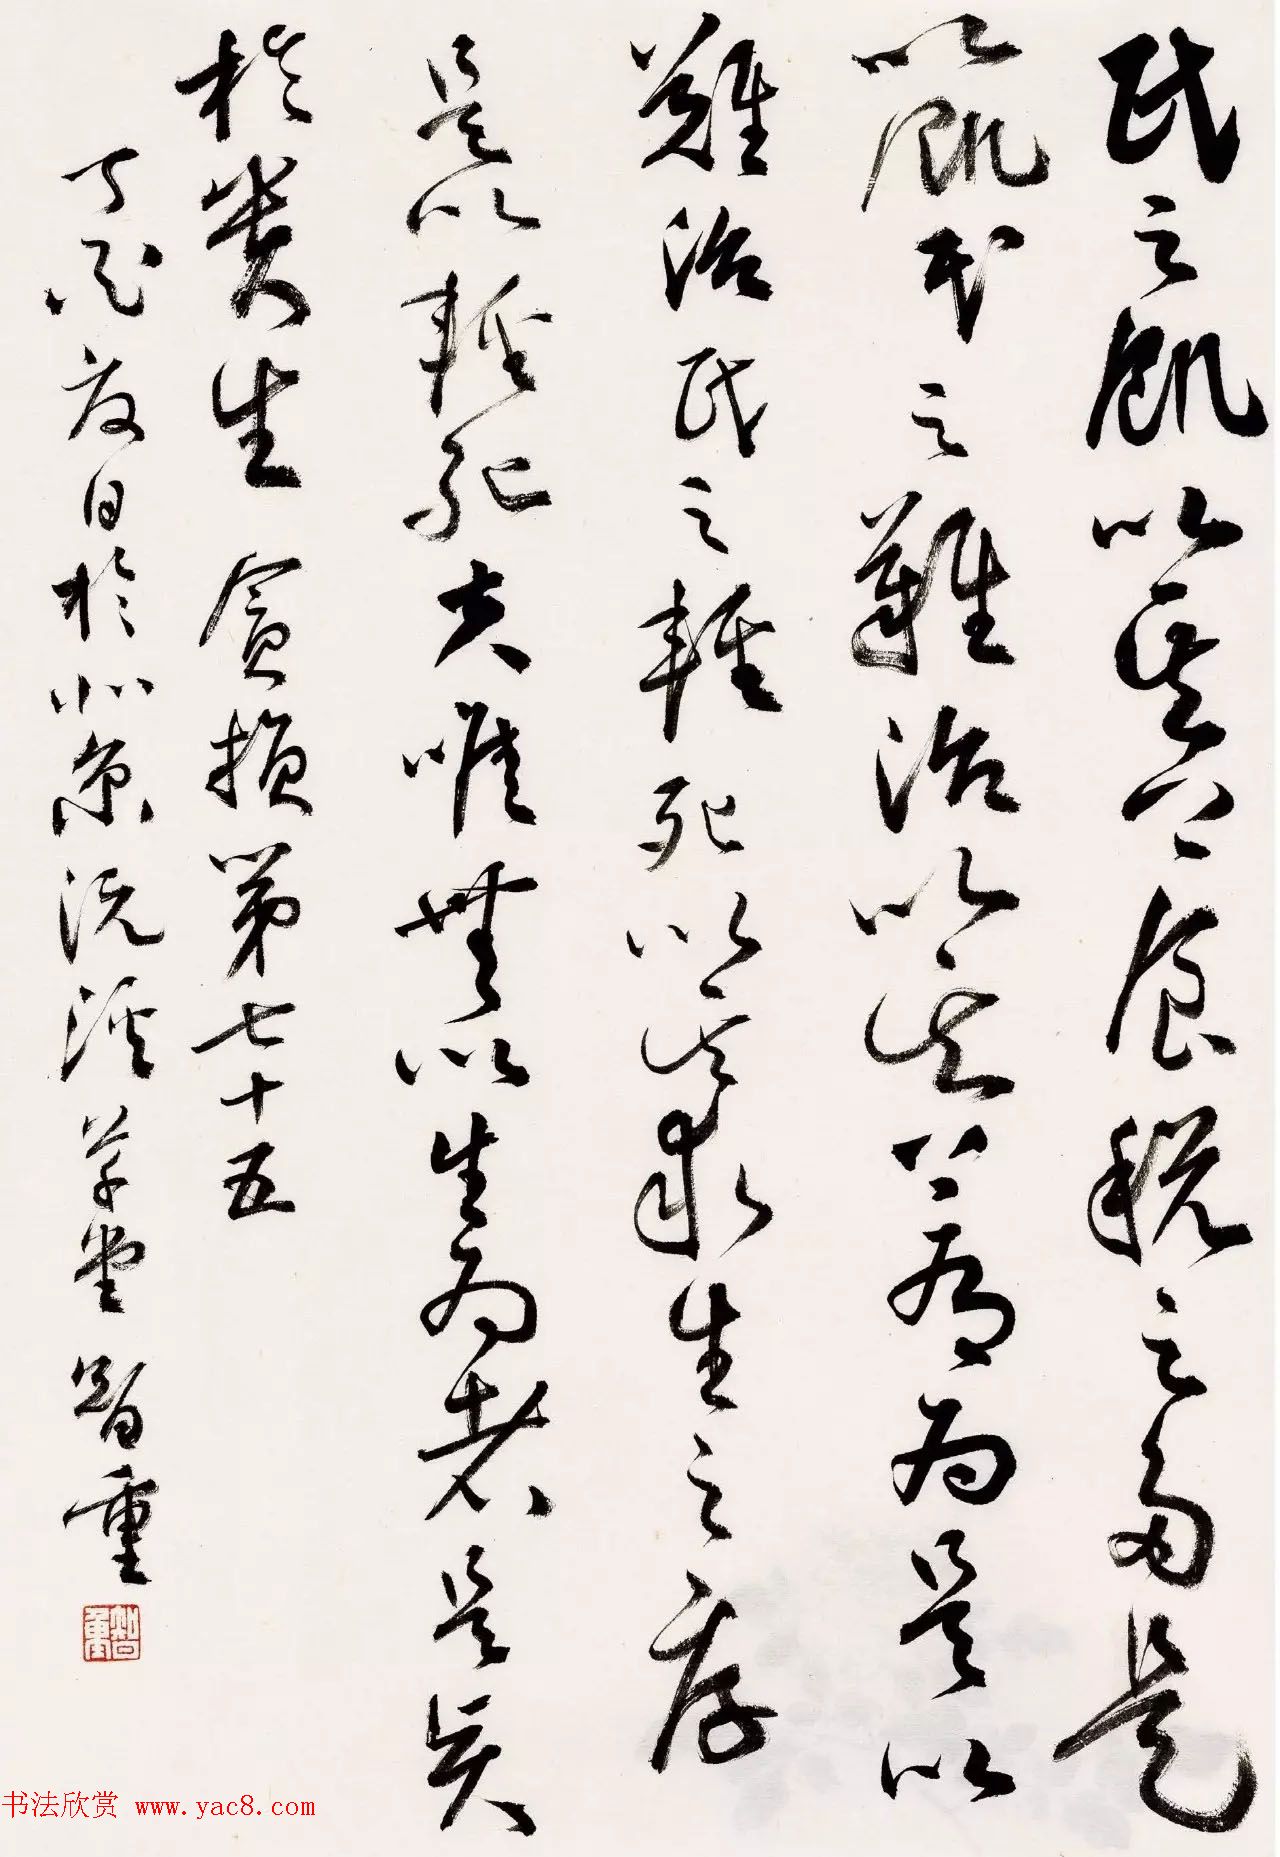 民之飢以其上食税之多是
以飢民之難治以其上有為是以
難治民之輕死以其求生之厚
是以輕死夫唯無以生為者是賢
於貴生 貪損第七十五
丁酉夏日於北京浣溪草堂 智重
智重
书法欣赏 www.yac8.com